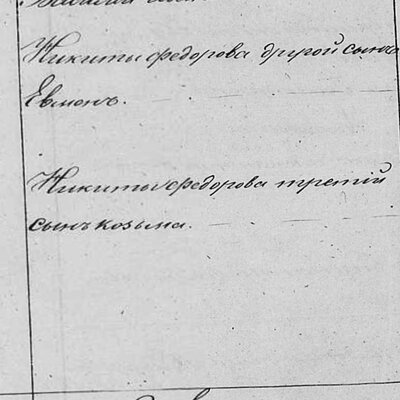 Никиты федорова другой сынъ
Евмонъ.
Никиты федорова третій
сынъ козьма.